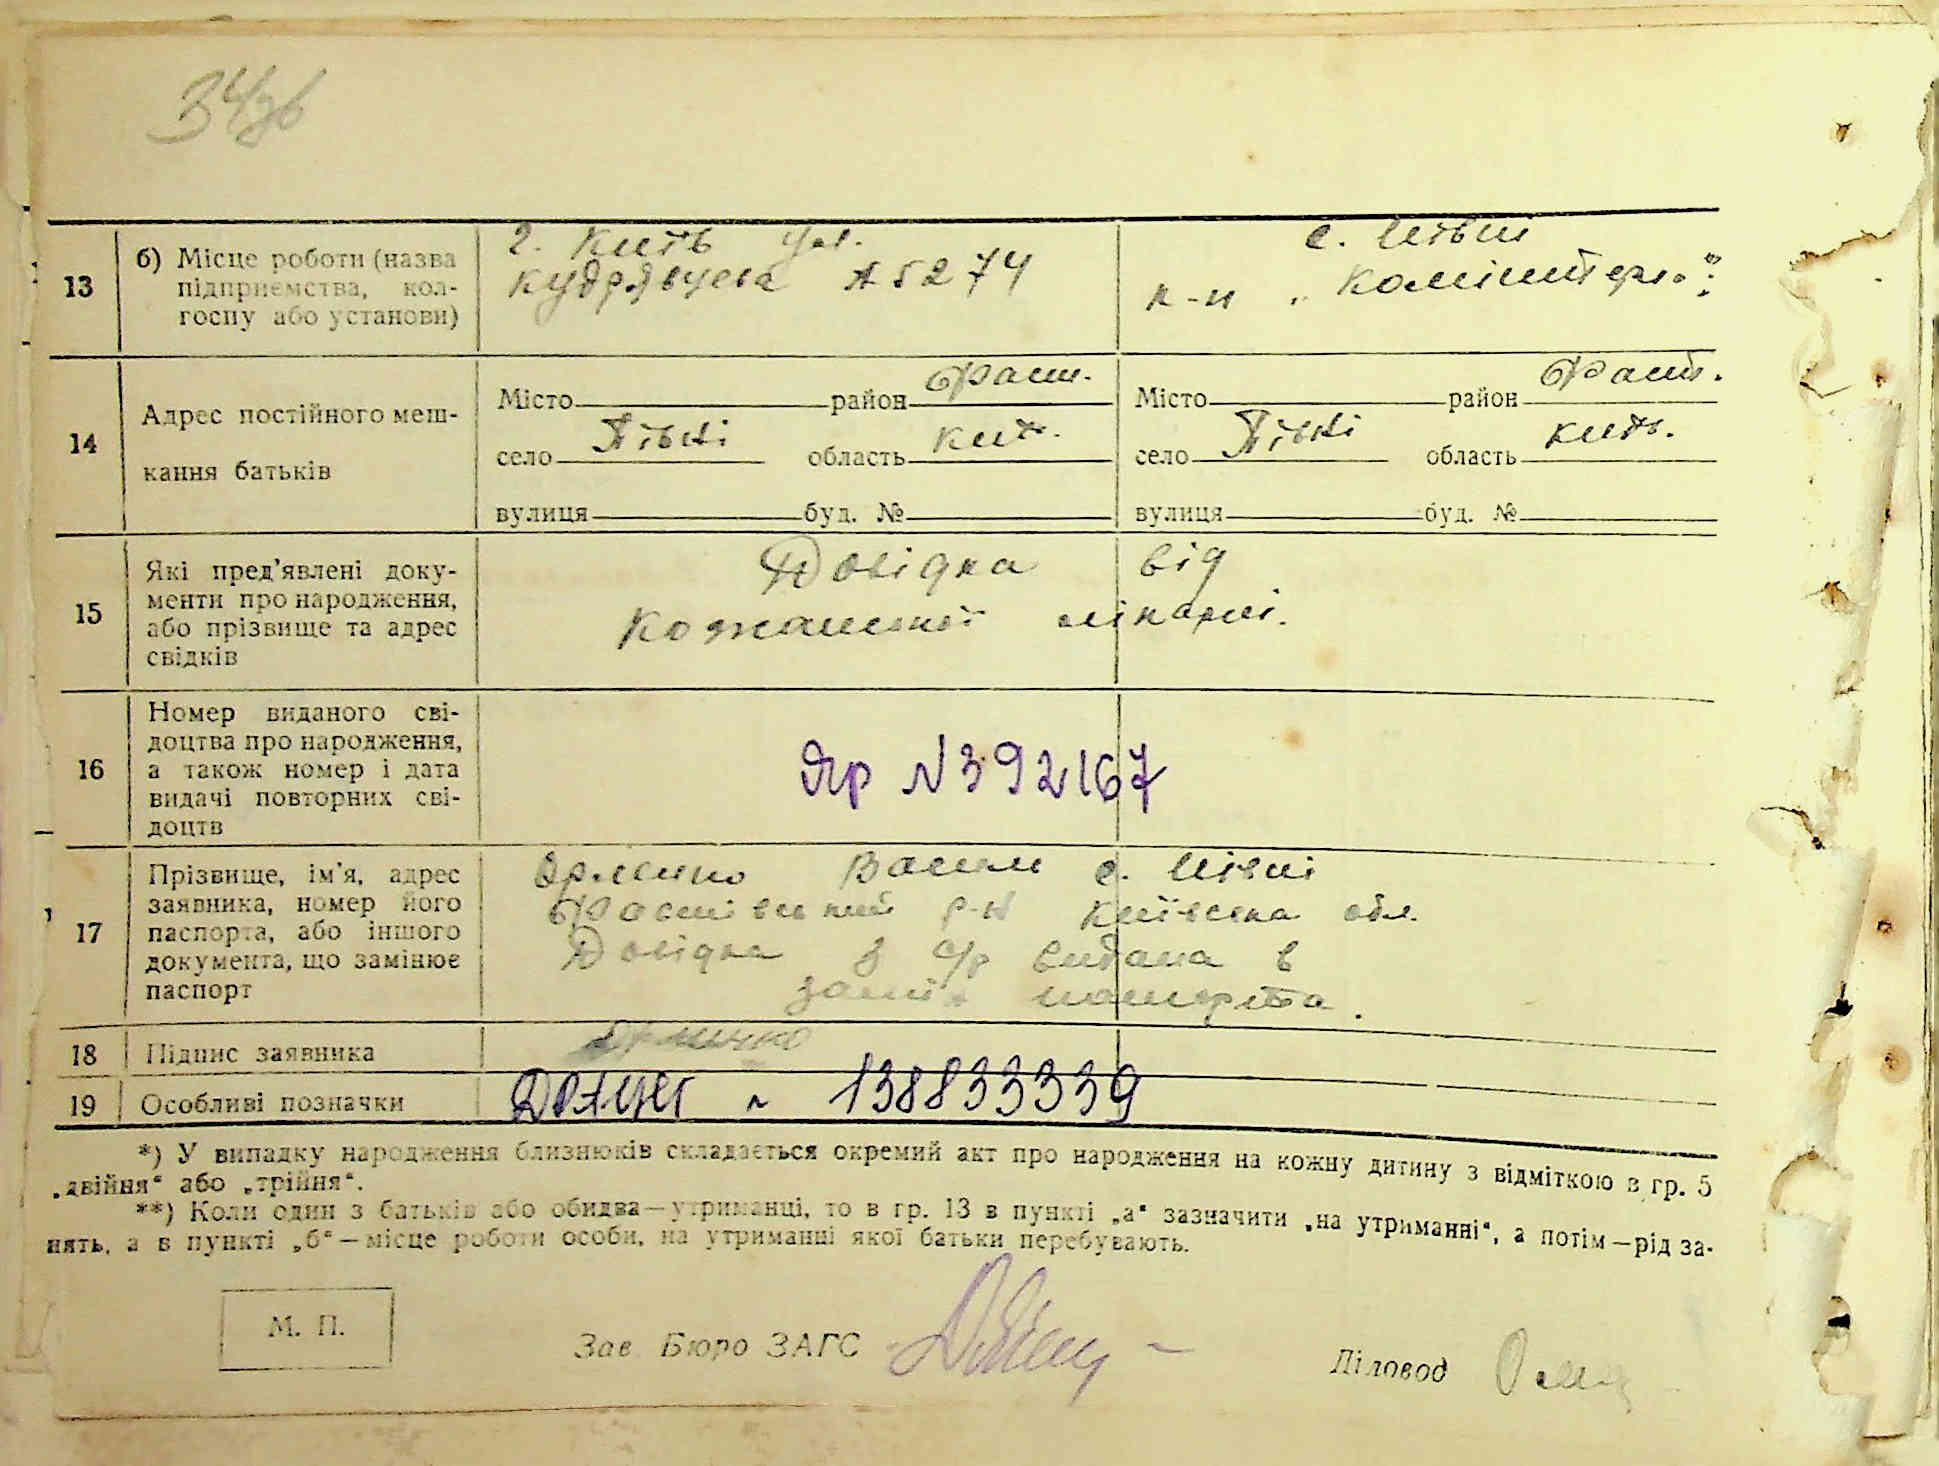 34зв
13
б) Місце роботи (назва
підприємства, кол-
госпу або установи)
г. Київ ул.
Кудрявцева А 5274
с. Півні
к-п „Комінтерн“
14
Адрес постійного меш-
кання батьків
Місто район Фаст.
село Півні область Київ.
вулиця буд. №
Місто район Фаст.
село Півні область Київ.
вулиця буд. №
15
Які пред’явлені доку-
менти про народження,
або прізвище та адрес
свідків
Довідка від
Кожанської лікарні.
16
Номер виданого сві-
доцтва про народження,
а також номер і дата
видачі повторних сві-
доцтв
ЯР N 392167
17
Прізвище, ім’я, адрес
заявника, номер його
паспорта, або іншого
документа, що замінює
паспорт
Василь с. Півні
Фастівський р-н Київська обл.
Довідка з с/р видана в
замін пашпорта.
18
Підпис заявника
19
Особливі позначки
138833339
*) У випадку народження близнюків складається окремий акт про народження на кожну дитину з відміткою в гр. 5
„двійня“ або „трійня“.
**) Коли один з батьків або обидва—утриманці, то в гр. 13 в пункті „а“ зазначити „на утриманні“, а потім—рід за-
нять, а в пункті „б“—місце роботи особи, на утриманні якої батьки перебувають.
М. П.
Зав. Бюро ЗАГС
Діловод